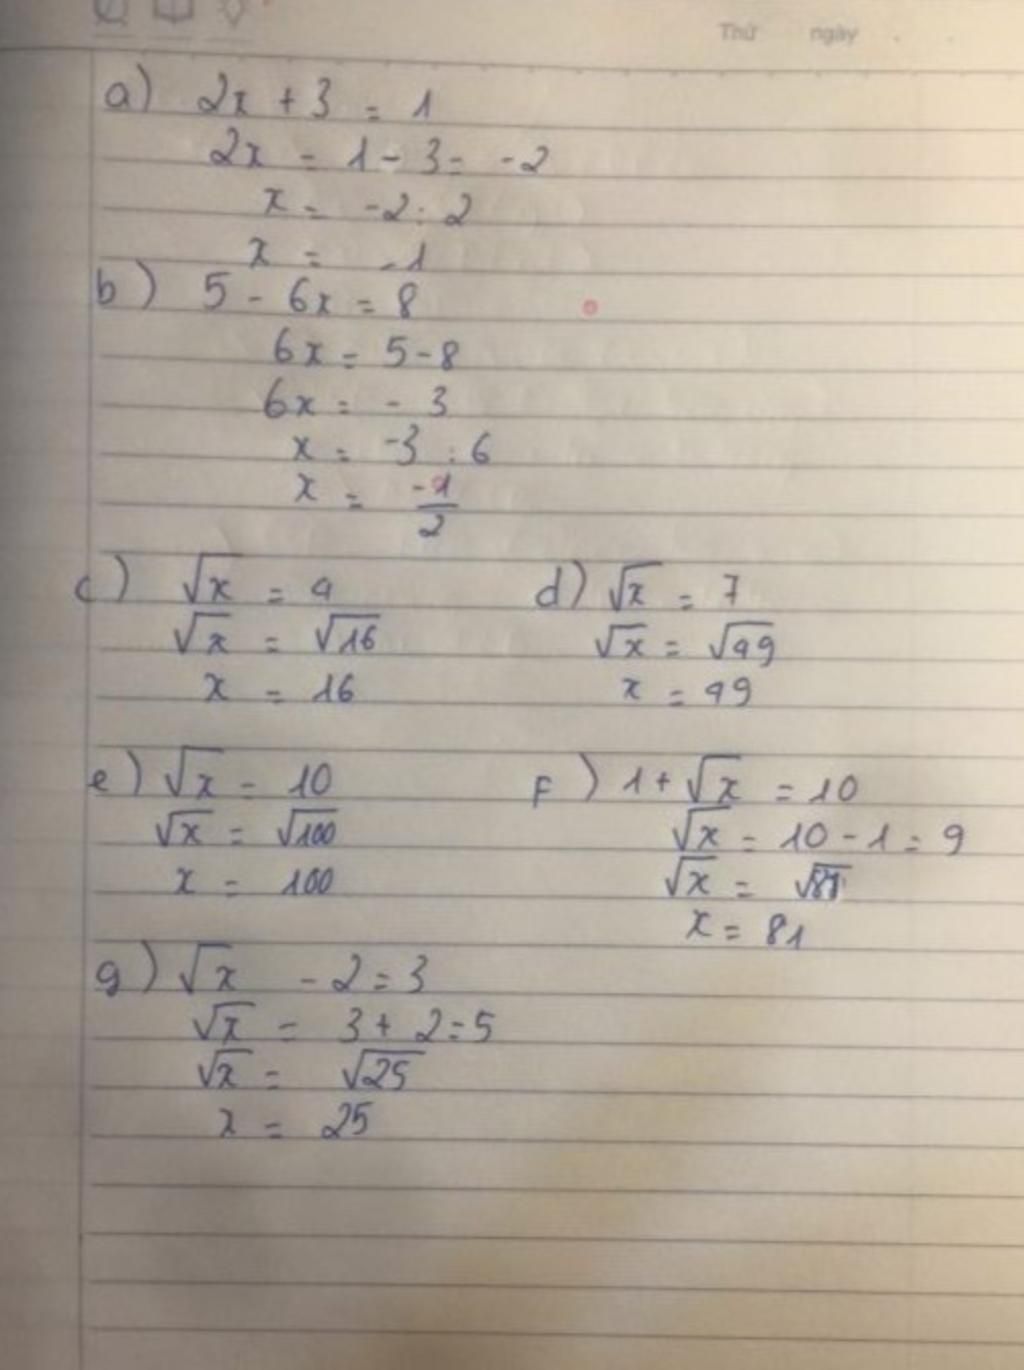 Thứ ngày
a) 2x + 3 = 1
2x = 1 - 3 = -2
x = -2 : 2
x = -1
b) 5 - 6x = 8
6x = 5 - 8
6x = - 3
x = -3 : 6
x = -1/2
c) √x = 4
√x = √16
x = 16
d) √x = 7
√x = √49
x = 49
e) √x = 10
√x = √100
x = 100
F) 1 + √x = 10
√x = 10 - 1 = 9
√x = √81
x = 81
g) √x - 2 = 3
√x = 3 + 2 = 5
√x = √25
x = 25